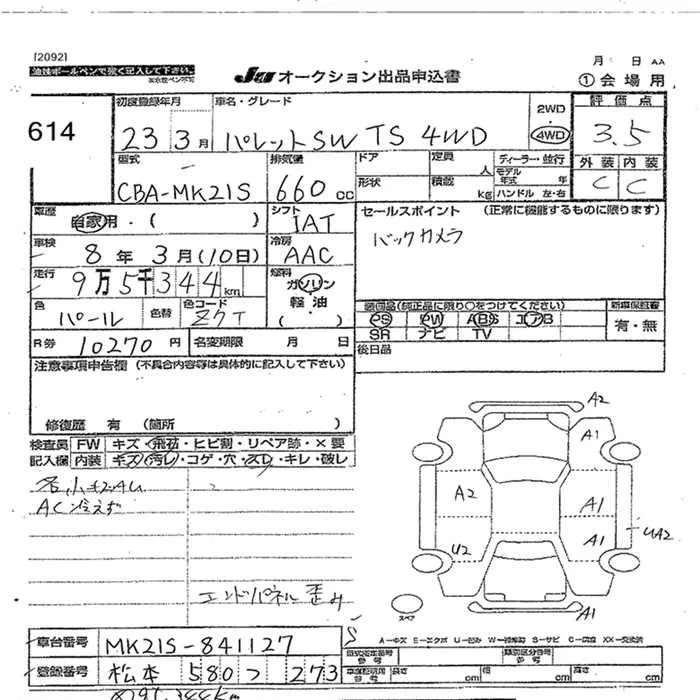 [2092]
油性ボールペンで強く記入して下さい。
JU オークション出品申込書
月 日 AA
①会場用
614
初度登録年月
23 3月
車名・グレード
パレットSW TS 4WD
2WD
・
4WD
評価点
3.5
型式
CBA-MK21S
排気量
660 cc
ドア
形状
定員 人
積載 kg
ディーラー・並行
モデル年式 年
ハンドル 左・右
外装 内装
C C
車歴
自家用・( )
シフト
IAT
セールスポイント (正常に機能するものに限ります)
バックカメラ
車検
8年 3月(10日)
冷房
AAC
走行
9万5千344km
燃料
ガソリン
軽油
( )
色
パール
色替
色コード
Z7T
装備品(純正品に限り○をつけてください)
PS PW ABS エアB
SR ナビ TV
新車保証書
有・無
R券
10270円
名変期限 月 日
後日品
注意事項申告欄 (不具合内容等は具体的に記入して下さい)
修復歴 有 (箇所 )
検査員記入欄
FW キズ・飛石・ヒビ割・リペア跡・×要
内装 キズ・汚れ・コゲ・穴・スレ・キレ・破レ
AC冷えず
エンドパネル歪み
A2
A1
A2
A1
U2
A1
UA2
A1
スペア
A-キズ E-エクボ U-凹み W-補修跡 S-サビ C-腐食 XX-交換済
車台番号
MK21S-841127
登録番号
松本 580 つ 273
型式指定番号
類別区分番号
車検証記載
長さ cm 幅 cm 高さ cm